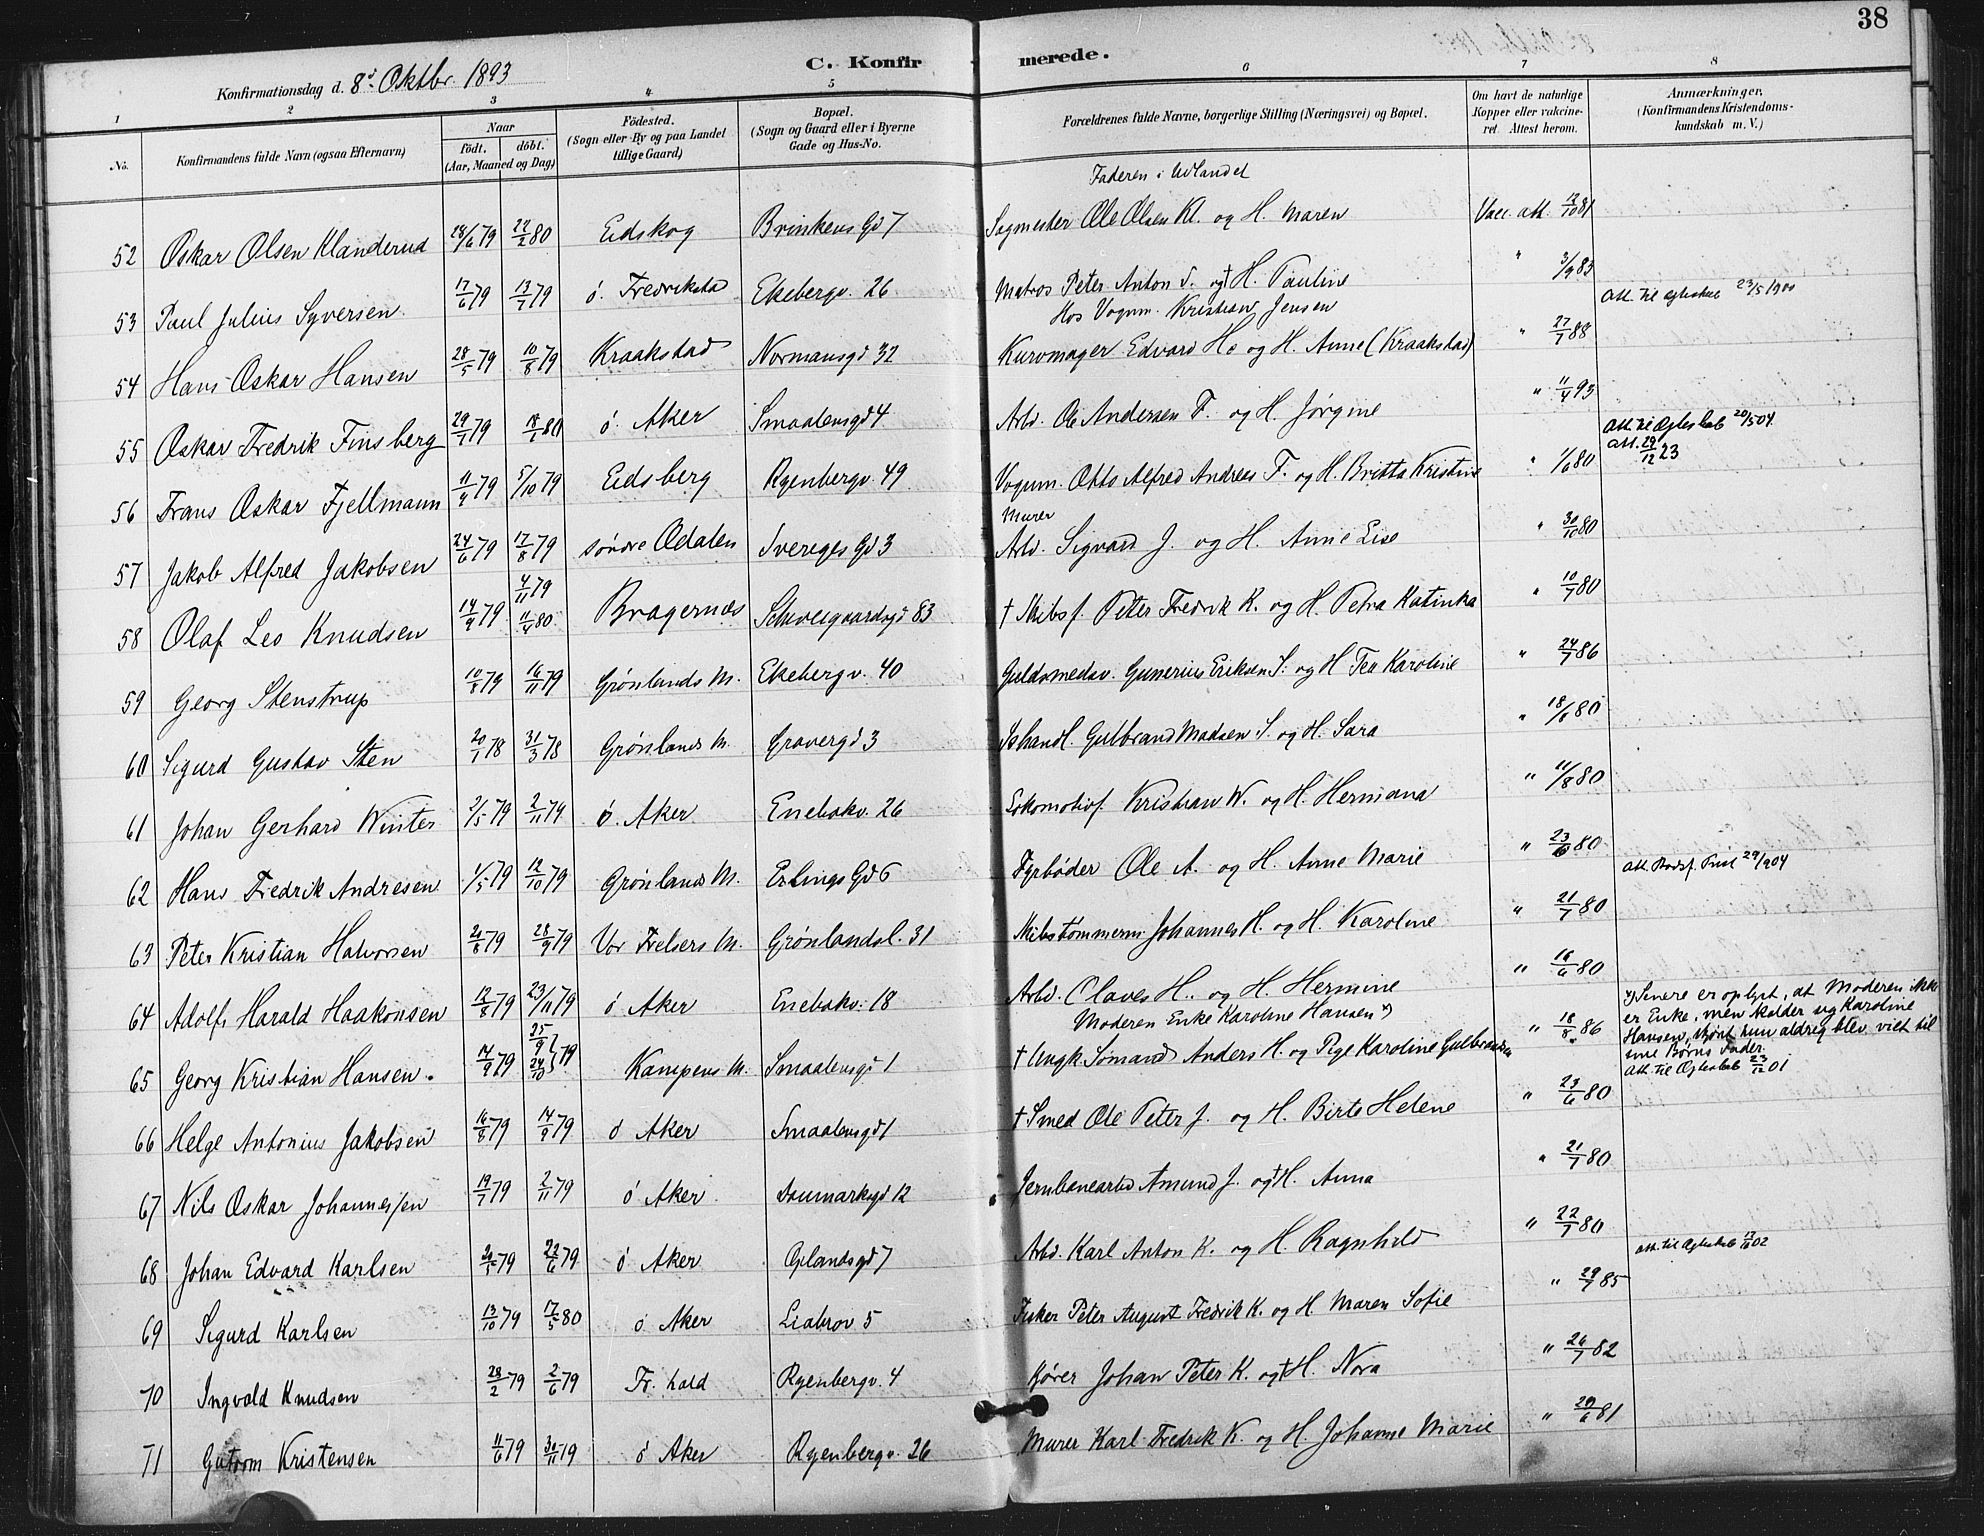 38
C. Konfirmerede.
Konfirmationsdag d. 8de Oktbr. 1893
1 2 3 4 5 6 7 8
No. Konfirmandens fulde Navn (ogsaa Efternavn) Naar födt. döbt. (Aar, Maaned og Dag) Födested. (Sogn eller By og paa Landet tillige Gaard) Bopæl. (Sogn og Gaard eller i Byerne Gade og Hus-No. Forældrenes fulde Navne, borgerlige Stilling (Næringsvei) og Bopæl. Om havt de naturlige Kopper eller vakcineret. Attest herom. Anmærkninger. (Konfirmandens Kristendomskundskab m. V.)
Faderen i Udlandet
52 Oskar Olsen Klanderud 28/6 79 22/2 80 Eidskog Brinkens Gd 7 Sagmester Ole Olsen Kl. og H. Maren Vacc. att. 12/10 81
53 Paul Julius Syversen 17/6 79 13/7 79 ö. Fredrikstad Ekebergv. 26 Matros Peter Anton S. og † H. Pauline " 3/9 83 Att. til Ægteskab 23/5 1900
Hos Vognm. Kristian Jensen
54 Hans Oskar Hansen 28/5 79 10/8 79 Kraakstad Normansgd 32 Kurvmager Edvard H. og H. Anne (Kraakstad) " 27/7 88
55 Oskar Fredrik Finsberg 29/7 79 18/1 80 ö. Aker Smaalensgd 4 Arbd. Ole Andersen F. og H. Jörgine " 11/4 93
Att. til Ægteskab 20/5 04
Att. 29/12 23
56 Frans Oskar Fjellmann 11/9 79 5/10 79 Eidsberg Ryenbergv. 49 Vognm. Otto Alfred Andreas F. og H. Britta Kristine " 1/6 80
Murer
57 Jakob Alfred Jakobsen 24/6 79 17/8 79 söndre Ödalen Sveregs Gd 3 Arbd. Sigvard J. og H. Anne Lise " 30/10 80
58 Olaf Leo Knudsen 14/9 79 4/11 79 11/4 80 Bragernæs Schweigaardsgd 83 † Skibsf. Peter Fredrik K. og H. Petra Katinka " 10/7 80
59 Georg Stenstrup 10/8 79 16/11 79 Grönlands M. Ekebergv. 40 Guldsmedsv. Gunerius Eriksen S. og H. Tea Karoline " 24/7 86
60 Sigurd Gustav Sten 20/1 78 31/3 78 Grönlands M. Gravergd 3 Ishandl. Gulbrand Madsen S. og H. Sara " 18/8 80
61 Johan Gerhard Winter 2/5 79 2/11 79 ö. Aker Enebakv. 26 Lokomotivf. Kristian W. og H. Hermana " 11/8 80
62 Hans Fredrik Andresen 1/5 79 12/10 79 Grönlands M. Erlings Gd 6 Fyrböder Ole A. og H. Anne Marie " 23/6 80 Att. Bodsf. Prest 29/9 04
63 Peter Kristian Halvorsen 21/8 79 28/9 79 Vor Frelsers M. Grönlandsl. 31 Skibstömmerm. Johannes H. og H. Karoline " 21/7 80
64 Adolf Harald Haakonsen 12/8 79 23/11 79 ö Aker Enebakv. 18 Arbd. Claves H. og H. Hermine " 16/6 80
Moderen Enke Karoline Hansen x)
65 Georg Kristian Hansen. 14/9 79 25/9 24/10 79 Kampens M. Smaalensgd 1 † Ungk. Sömand Anders H. og Pige Karoline Gulbrandsen " 18/8 86
x) Senere er oplyst, at Moderen ikke
er Enke, men kalder sig Karoline
Hansen, skjönt hun aldrig blev viet til
sine Börns Fader.
Att. til Ægteskab 23/12 01
66 Helge Antonius Jakobsen 16/8 79 14/9 79 ö Aker Smaalensgd 1 † Smed Ole Peter J. og H. Birte Helene " 23/6 80
67 Nils Oskar Johannessen 19/7 79 2/11 79 ö Aker Danmarksgd 12 Jernbanearbd Amund J. og † H. Anna " 21/7 80
68 Johan Edvard Karlsen 21/5 79 22/6 79 ö Aker Oplandsgd 7 Arbd. Karl Anton K. og H. Ragnhild " 22/7 80 Att. til Ægteskab 12/10 02
69 Sigurd Karlsen 13/10 79 17/5 80 ö. Aker Liabrov 5 Fisker Peter August Fredrik K. og H. Maren Sofie " 29/7 85
70 Ingvald Knudsen 28/2 79 2/6 79 Fr. hald Ryenbergv. 4 Kjörer Johan Peter K. og † H. Nora " 26/7 82
71 Guttorm Kristensen 11/6 79 30/11 79 ö Aker Ryenbergv. 26 Murer Karl Fredrik K. og H. Johanne Marie " 29/6 81